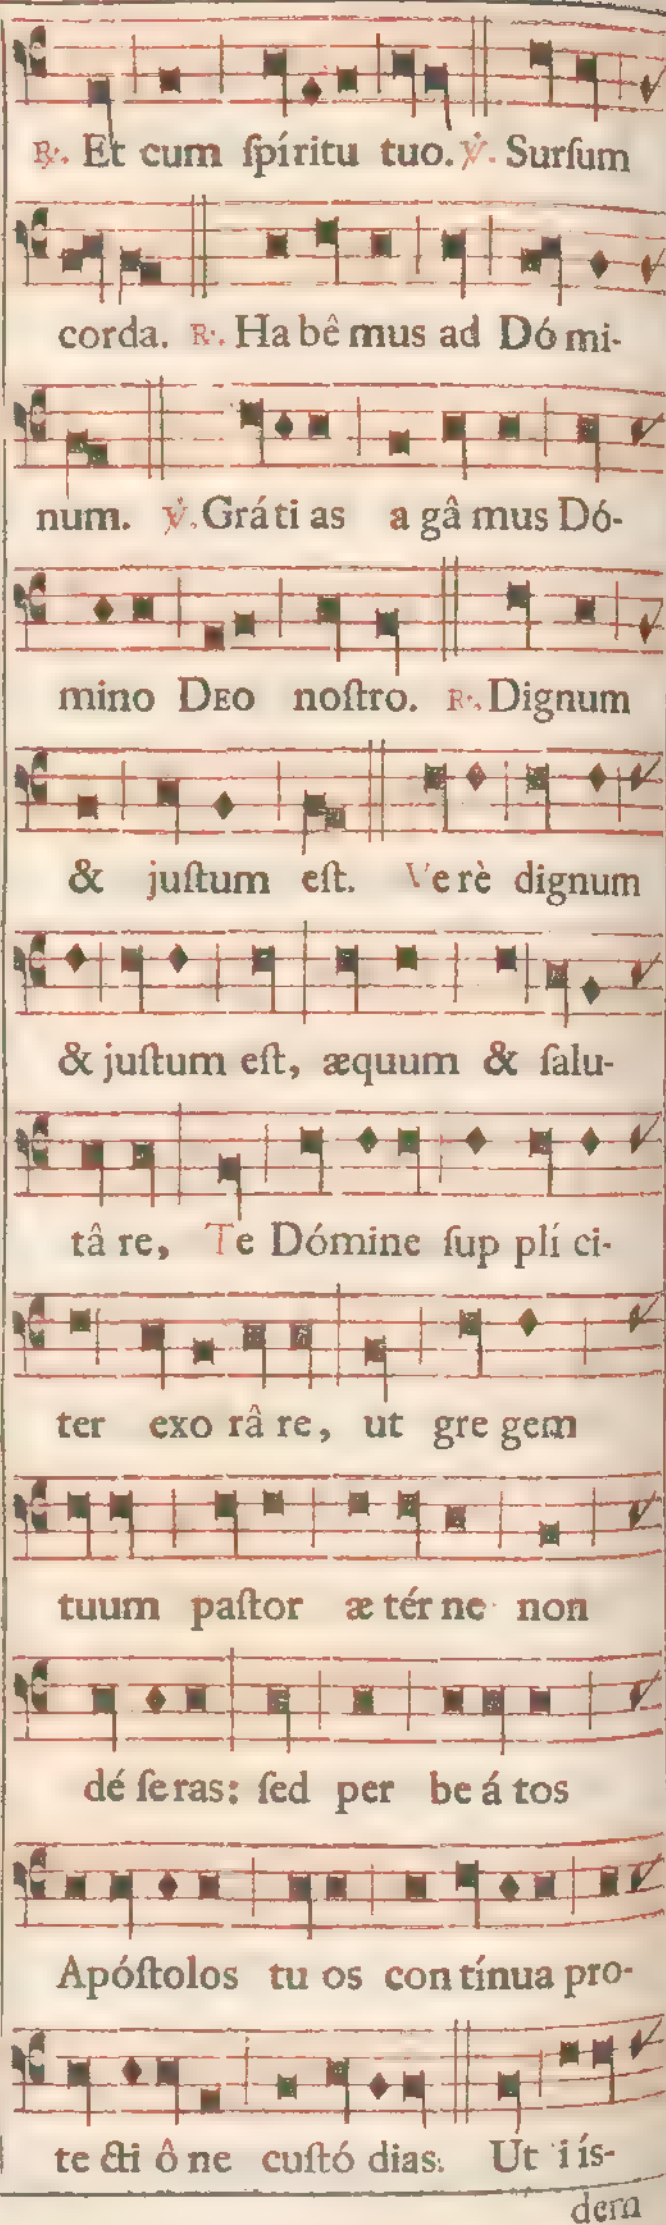 ℟. Et cum ſpíritu tuo. ℣. Surſum
corda. ℟. Ha bê mus ad Dó mi-
num. ℣. Gráti as a gâ mus Dó-
mino DEO noſtro. ℟. Dignum
& juſtum eſt. Ve rè dignum
& juſtum eſt, æquum & ſalu-
tâ re, Te Dómine ſup plí ci-
ter exo râ re, ut gre gem
tuum paſtor æ tér ne non
dé ſe ras: ſed per be á tos
Apóſtolos tu os con tínua pro-
te cti ô ne cuſtó dias. Ut i ís-
dem